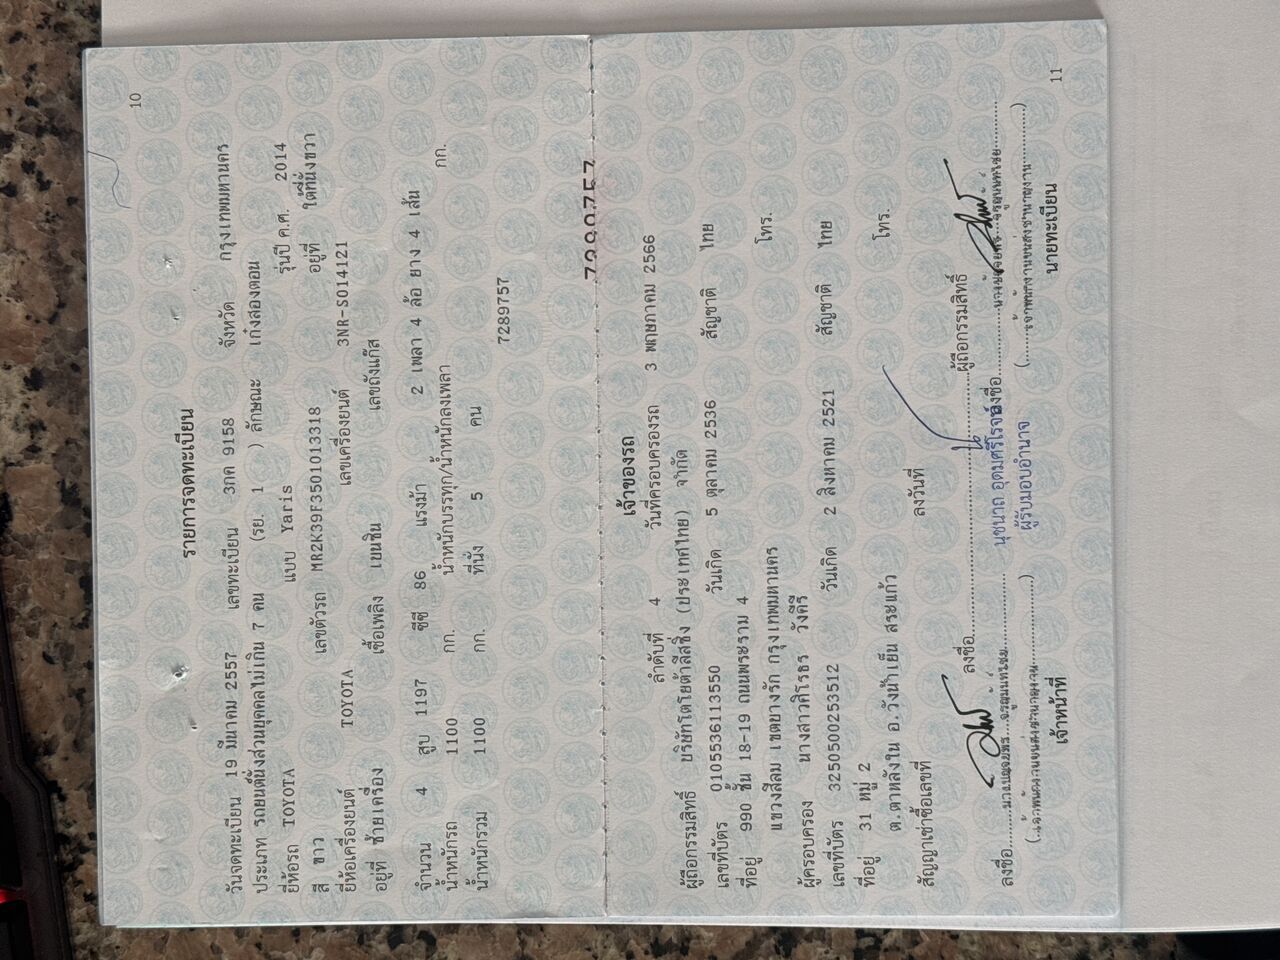 10
รายการจดทะเบียน
วันจดทะเบียน 19 มีนาคม 2557 เลขทะเบียน 3กค 9158 จังหวัด กรุงเทพมหานคร
ประเภท รถยนต์นั่งส่วนบุคคลไม่เกิน 7 คน (รย. 1 ) ลักษณะ เก๋งสองตอน
ยี่ห้อรถ TOYOTA แบบ Yaris รุ่นปี ค.ศ. 2014
สี ขาว เลขตัวรถ MR2K39F3501013318 อยู่ที่ ใต้ที่นั่งขวา
ยี่ห้อเครื่องยนต์ TOYOTA เลขเครื่องยนต์ 3NR-S014121
อยู่ที่ ซ้ายเครื่อง เชื้อเพลิง เบนซิน เลขถังแก๊ส
จำนวน 4 สูบ 1197 ซีซี 86 แรงม้า 2 เพลา 4 ล้อ ยาง 4 เส้น
น้ำหนักรถ 1100 กก. น้ำหนักบรรทุก/น้ำหนักลงเพลา กก.
น้ำหนักรวม 1100 กก. ที่นั่ง 5 คน
7289757
7289757
เจ้าของรถ
ลำดับที่ 4 วันที่ครอบครองรถ 3 พฤษภาคม 2566
ผู้ถือกรรมสิทธิ์ บริษัทโตโยต้าลีสซิ่ง (ประเทศไทย) จำกัด
เลขที่บัตร 0105536113550 วันเกิด 5 ตุลาคม 2536 สัญชาติ ไทย
ที่อยู่ 990 ชั้น 18-19 ถนนพระราม 4
แขวงสีลม เขตบางรัก กรุงเทพมหานคร โทร.
ผู้ครอบครอง นางสาวศิโรธร วังคีรี
เลขที่บัตร 3250500253512 วันเกิด 2 สิงหาคม 2521 สัญชาติ ไทย
ที่อยู่ 31 หมู่ 2
ต.ตาหลังใน อ.วังน้ำเย็น สระแก้ว โทร.
สัญญาเช่าซื้อเลขที่ ลงวันที่
ลงชื่อ ผู้ถือกรรมสิทธิ์
นุชนาถ อุดมศรีโรจน์
ผู้รับมอบอำนาจ
ลงชื่อ ลงชื่อ
(เจ้าพนักงานขนส่งชำนาญงาน) (เจ้าพนักงานขนส่งชำนาญงาน)
เจ้าหน้าที่ นายทะเบียน
11